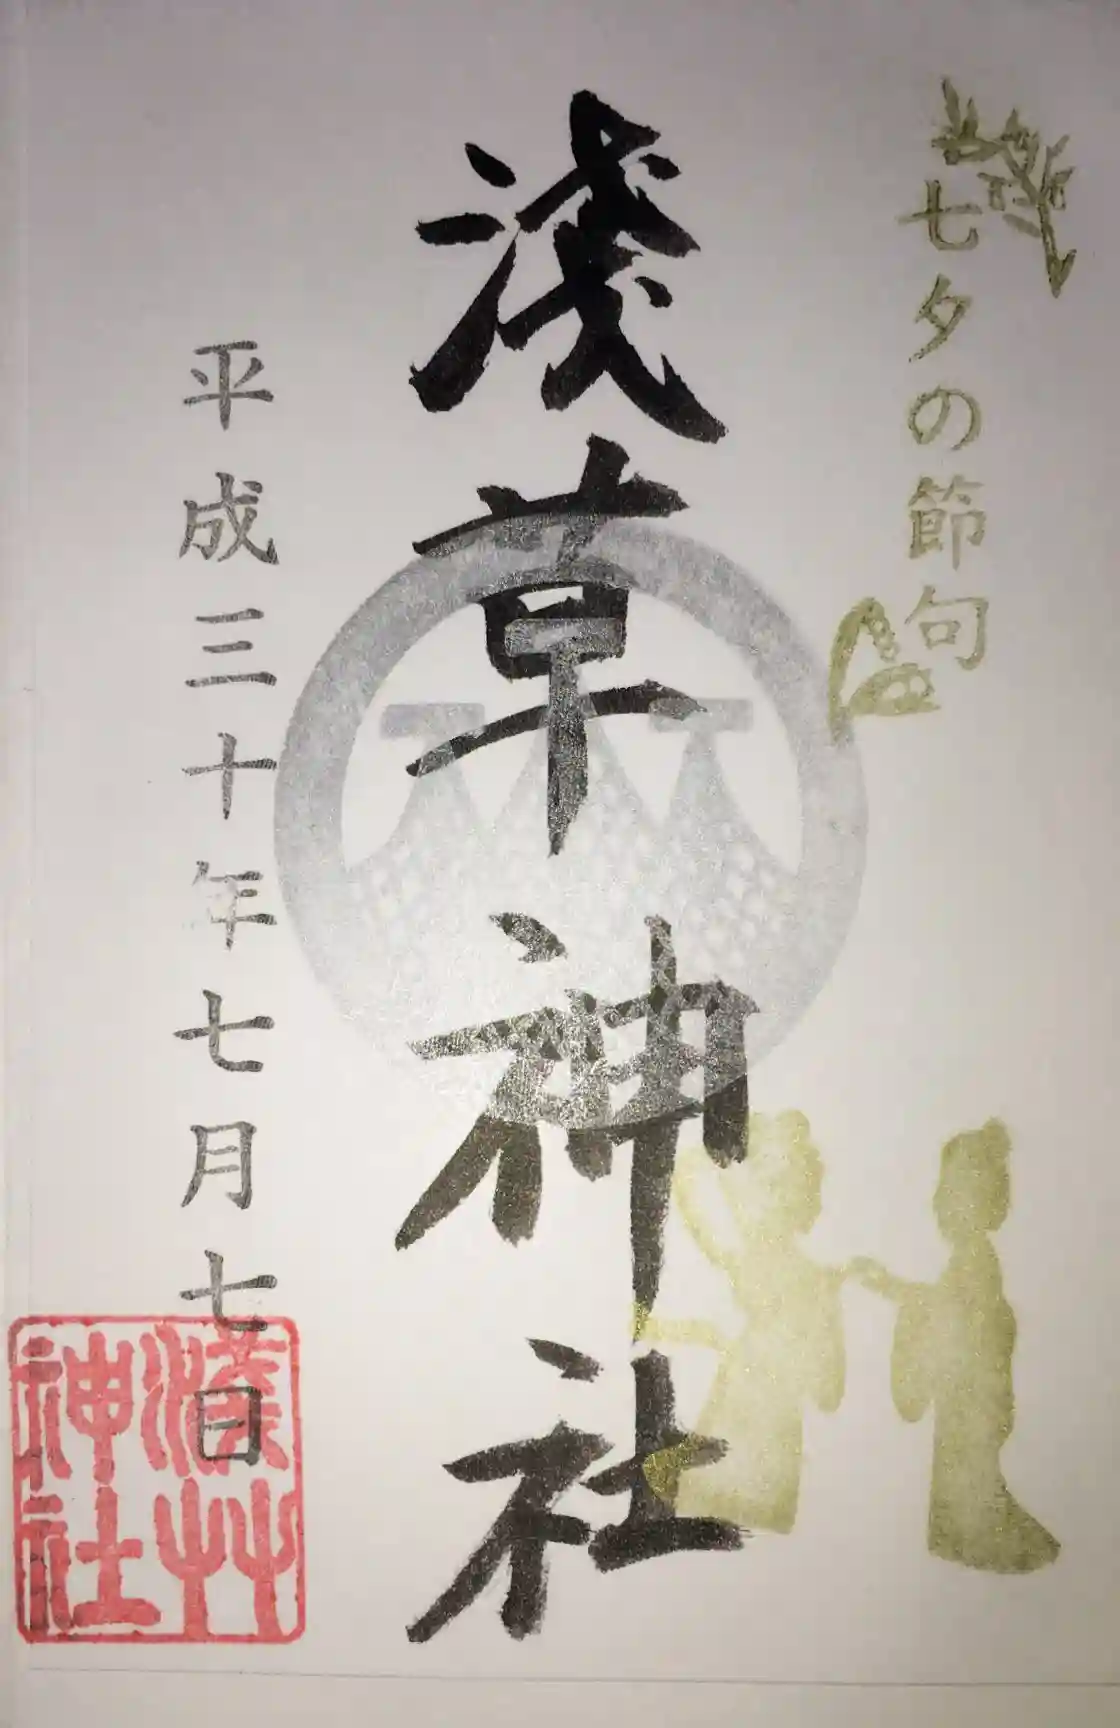 七夕の節句
浅草神社
平成三十年七月七日
浅草
神社